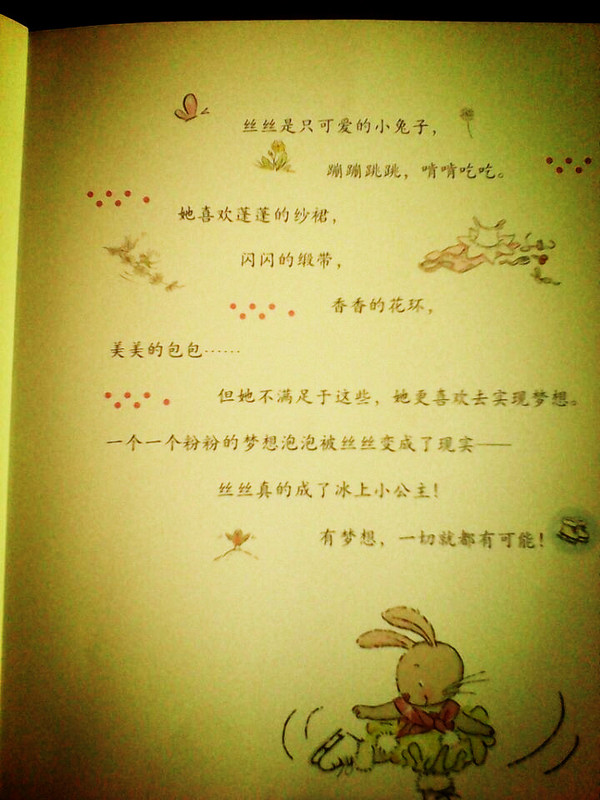 丝丝是只可爱的小兔子，
蹦蹦跳跳，啃啃吃吃。
她喜欢蓬蓬的纱裙，
闪闪的缎带，
香香的花环，
美美的包包……
但她不满足于这些，她更喜欢去实现梦想。
一个一个粉粉的梦想泡泡被丝丝变成了现实——
丝丝真的成了冰上小公主！
有梦想，一切就都有可能！